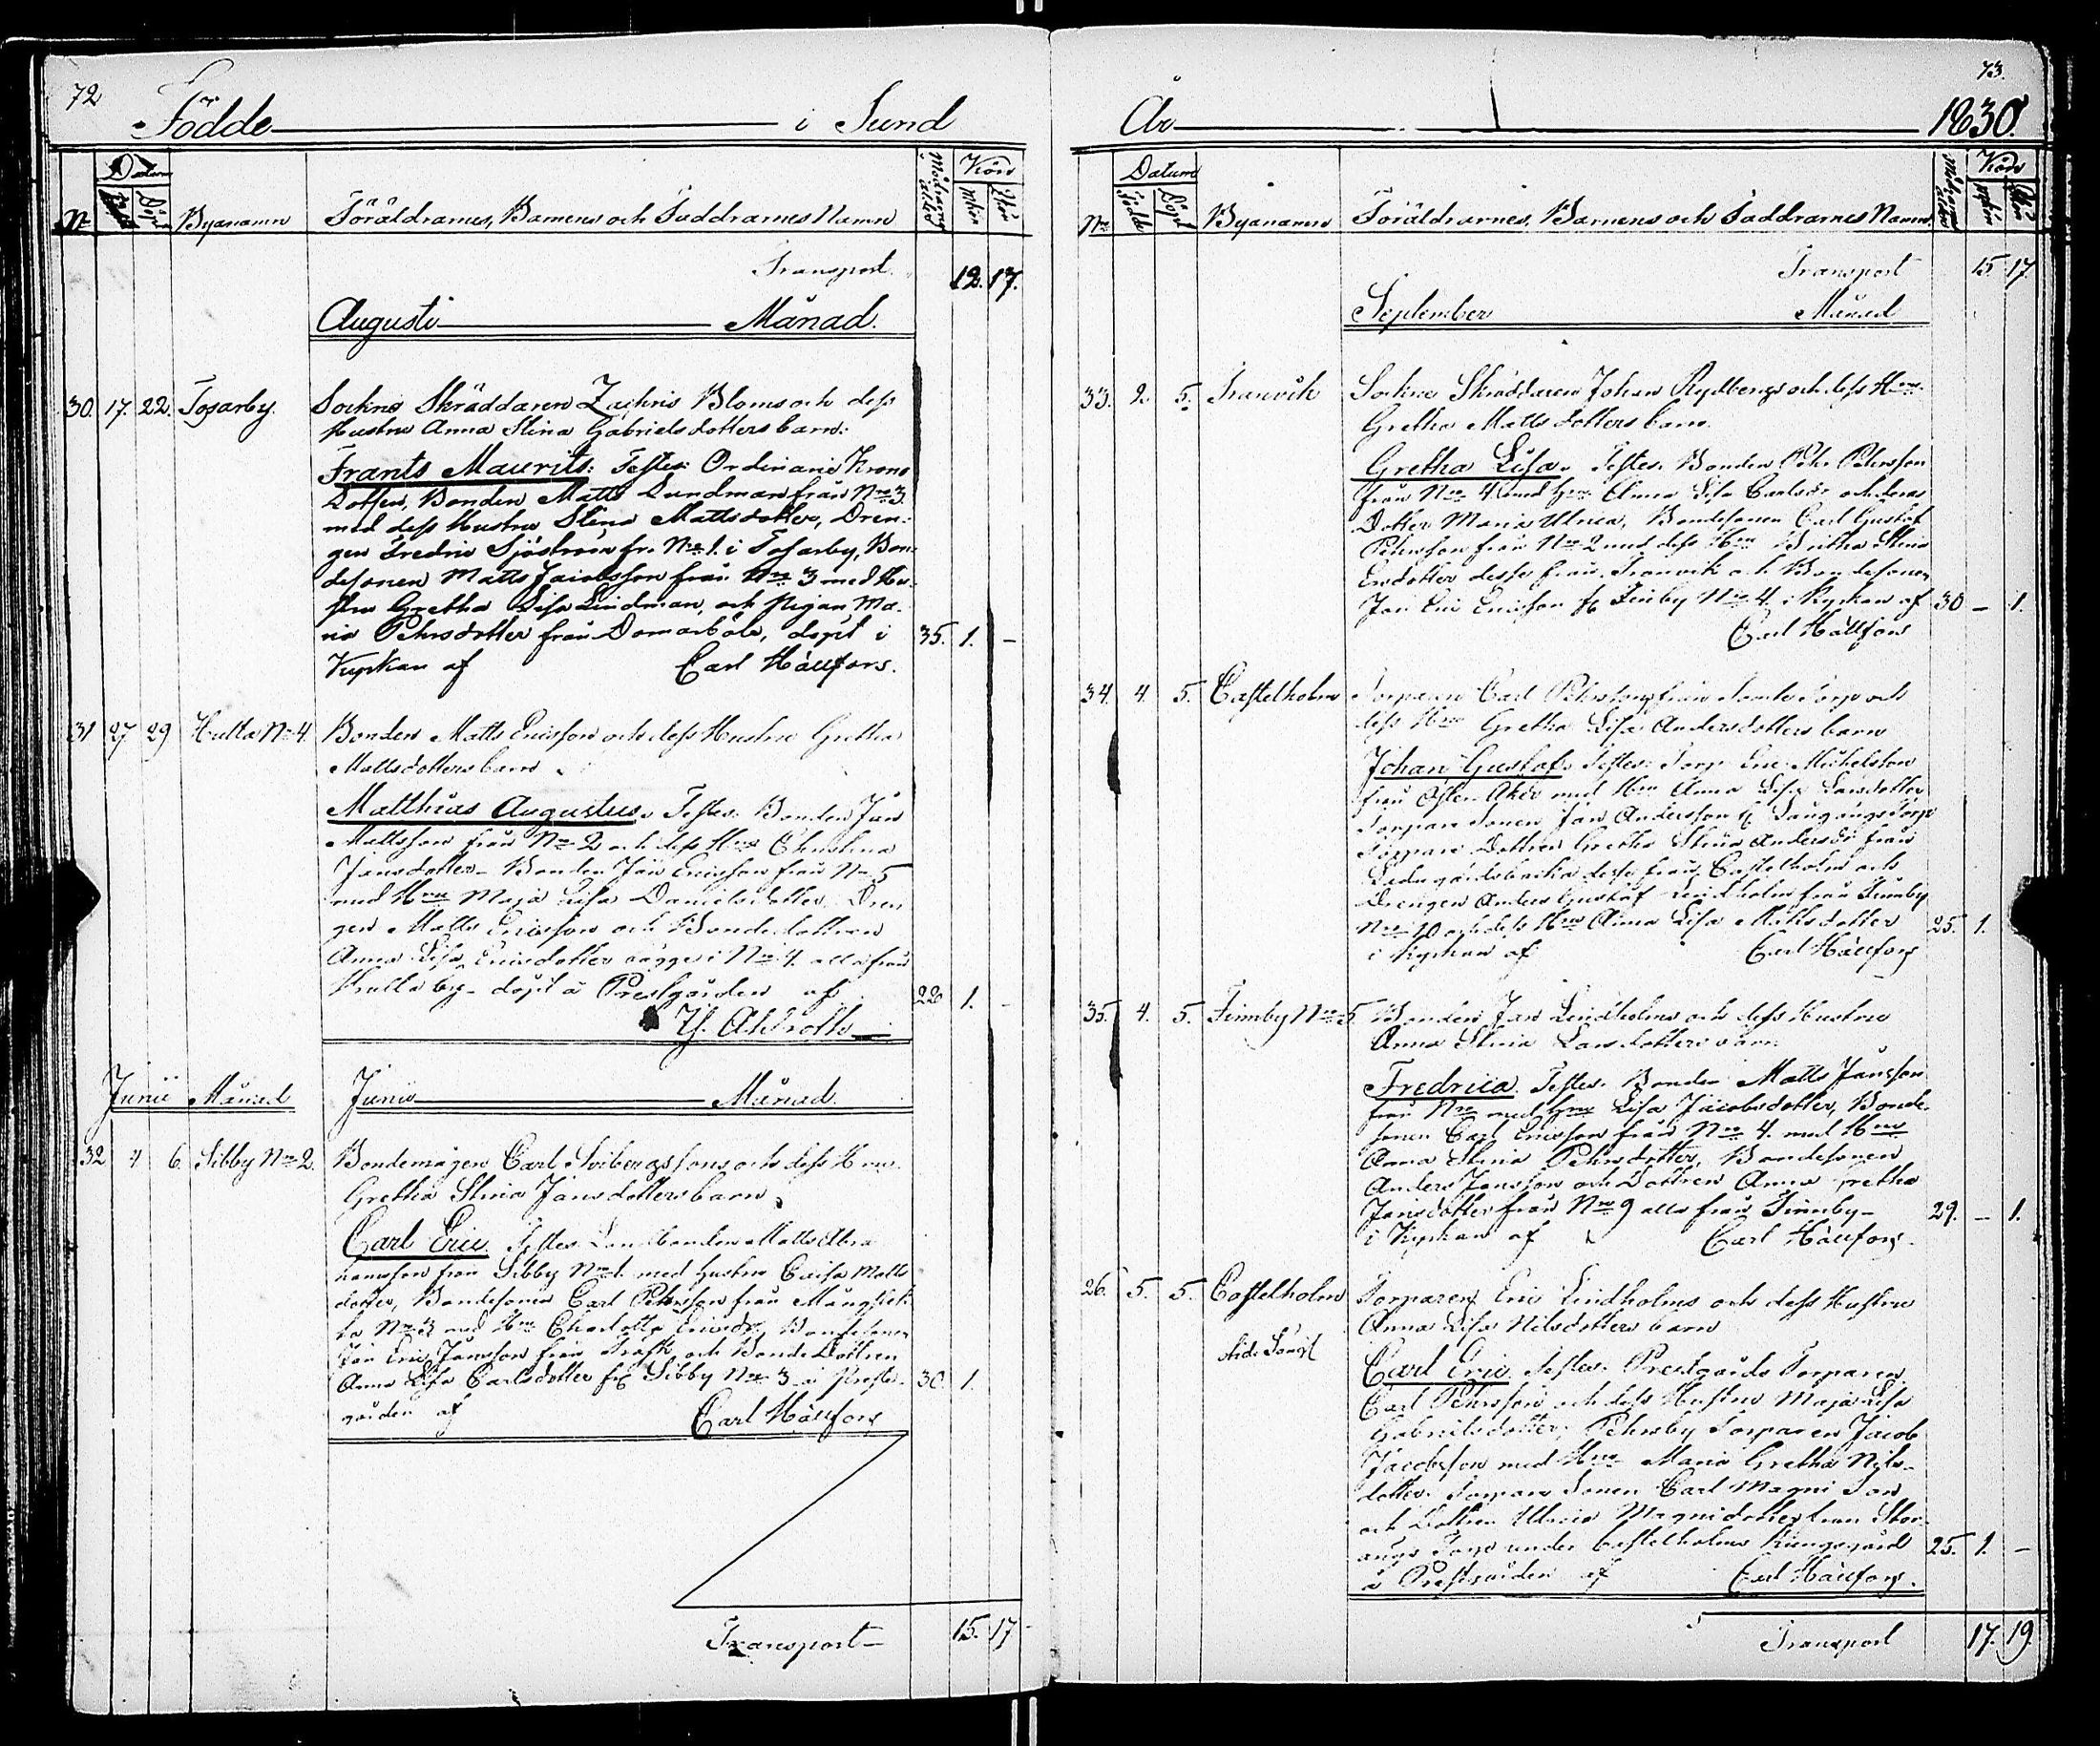 72
Födde i Sund
Datum
Kön
No
Född
Döpt
Byanamn
Föräldrarnes, Barnens och Faddrarnes Namn
Mödrarnes ålder
Mkön
Qkön
Transport. 12. 17.
Augusti Månad.
30. 17. 22. Tosarby. Sockne Skräddaren Zachris Bloms och dess
Hustru Anna Stina Gabriels dotters barn:
Frants Maurits: Testes: Ordinarie Krono
Lotsen, Bonden Matts Lundman från No 3
med dess Hustru Stina Mattsdotter, Dren-
gen Fredric Sjöström fr. No 1. i Tosarby, Bon-
desonen Matts Jacobsson från No 3 med Hu-
stru Gretha Lisa Lindman, och Pigan Ma-
ria Pehrsdotter från Domarböle, döpt i 35. 1. –
Kyrkan af Carl Hällfors.
31 27 29 Hulta No 4. Bonden Matts Ericsson och dess Hustru Gretha
Mattsdotters barn
Matthias Augustus. Testes: Bonden Jan
Mattsson från No 2 och dess Hru Christina
Jansdotter – Bonden Jan Ericsson från No 5
med Hru Maja Lisa Danielsdotter. Dren
gen Matts Ericsson och Bondedottren
Anna Lisa Ericsdotter bägge i No 4. alla från
Hulta by – döpt å Prestgården af 22 1. –
Junii Månad Junii Månad.
32 4 6. Sibby No 2. Bondemågen Carl Sribergssons och dess Hru
Gretha Stina Jansdotters barn
Carl Eric. Testes Landbonden Matts Abra
hamsson från Sibby No 1. med Hustru Caisa Matts
dotter, Bondesonen Carl Pehrsson från Mångstek
ta No 3 med Hru Charlotta Ericsdr Bondesonen
Jan Eric Jansson från Träsk, och Bonde Dottren
Anna Lisa Carlsdotter fr Sibby No 3 – i Prest- 30. 1.
gården af Carl Hällfors
Transport – 15. 17
73.
År 1830.
Datum
Kön
No
Född
Döpt
Byanamn
Föräldrarnes, Barnens och Faddrarnes Namn.
Mödrarnes ålder
Mkön
Qkön
Transport 15 17.
September Månad
33. 2. 5. Tranvik Sockne Skräddaren Johan Rydbergs och dess Hru
Gretha Matts dotters barn.
Gretha Lisa. Testes. Bonden Pehr Pehrsson
från No 4 med Hru Anna Lisa Carlsdr och deras
Dotter Maria Ulrica, Bondesonen Carl Gustaf
Pehrsson från No 2 med dess Hru Britha Stina
Ersdotter desse från Tranvik och Bondesonen
Jan Eric Ericsson fr Finby No 4. i Kyrkan af 30 – 1.
Carl Hällfors
34. 4. 5. Castelholm Torparen Carl Pehrssons från Torp och
dess Hru Gretha Lisa Andersdotters barn
Johan Gustaf. Testes: Torp. Eric Michelsson
från Öster Åker med Hru Anna Lisa Larsdotter
Torpare Sonen Jan Andersson fr Torp
Torpare Dottren Gretha Stina Andersdr från
Ladugårdsbacka desse från Castelholm och
Drengen Anders Gustaf Lindholm från Finnby
No 10 och dess Hru Anna Lisa Mattsdotter 25. 1.
i Kyrkan af Carl Hällfors
35. 4. 5. Finnby No 5 Bonden Jan Lindholms och dess Hustru
Anna Stina Larsdotters barn
Fredrica. Testes. Bonden Matts Jansson
från No med Hru Lisa Jacobsdotter, Bonde-
sonen Carl Ericsson från No 4. med Hru
Anna Stina Pehrsdotter, Bondesonen
Anders Jansson och Dottren Anna Gretha
Jansdotter från No 9 alla från Finnby – 29. – 1.
i Kyrkan af Carl Hällfors.
26. 5. 5. Castelholm Torparen Eric Lindholms och dess Hustru
Anna Lisa Nilsdotters barn
Carl Eric. Testes. Prestgårds Torparen
Carl Pehrsson och dess Hustru Maja Lisa
Gabrielsdotter, Pehrsby Torparen Jacob
Jacobsson med Hru Maria Gretha Nils-
dotter. Torpare Sonen Carl Magni Son
och Dottren Ulrica Magnidotter från Stor-
ängs Torp under Castelholms Kungsgård 25. 1. –
å Prestgården af Carl Hällfors.
Transport 17. 19.